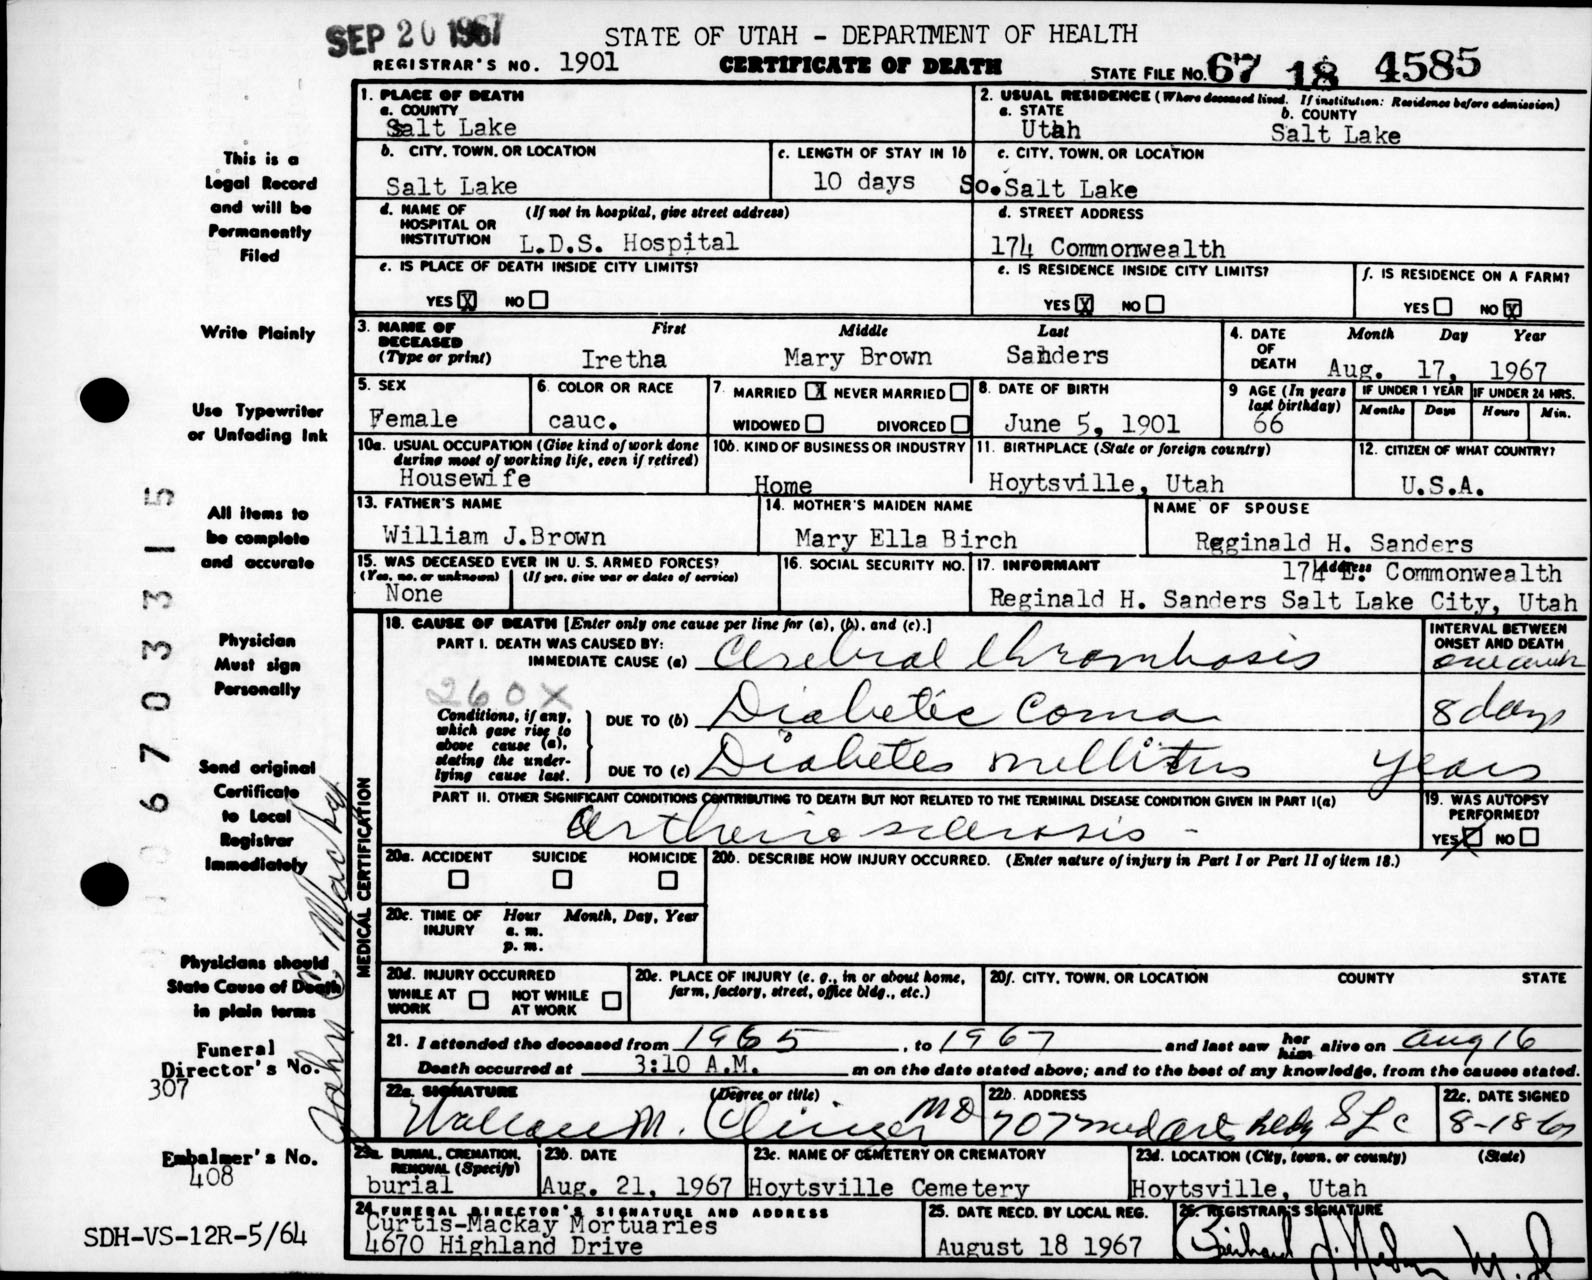 SEP 20 1967
STATE OF UTAH - DEPARTMENT OF HEALTH
REGISTRAR'S NO. 1901
CERTIFICATE OF DEATH
STATE FILE NO. 67 18 4585
This is a
Legal Record
and will be
Permanently
Filed
Write Plainly
Use Typewriter
or Unfading Ink
All items to
be complete
and accurate
Physician
Must sign
Personally
Send original
Certificate
to Local
Registrar
Immediately
Physicians should
State Cause of Death
in plain terms
Funeral
Director's No.
307
Embalmer's No.
408
SDH-VS-12R-5/64
06703315
John Mackay
1. PLACE OF DEATH
a. COUNTY
Salt Lake
2. USUAL RESIDENCE (Where deceased lived. If institution: Residence before admission)
a. STATE
Utah
b. COUNTY
Salt Lake
b. CITY, TOWN, OR LOCATION
Salt Lake
c. LENGTH OF STAY IN 1b
10 days
c. CITY, TOWN, OR LOCATION
So. Salt Lake
d. NAME OF HOSPITAL OR INSTITUTION
(If not in hospital, give street address)
L.D.S. Hospital
d. STREET ADDRESS
174 Commonwealth
e. IS PLACE OF DEATH INSIDE CITY LIMITS?
YES X NO
e. IS RESIDENCE INSIDE CITY LIMITS?
YES X NO
f. IS RESIDENCE ON A FARM?
YES NO X
3. NAME OF DECEASED
(Type or print)
First Middle Last
Iretha Mary Brown Sanders
4. DATE OF DEATH
Month Day Year
Aug. 17, 1967
5. SEX
Female
6. COLOR OR RACE
cauc.
7. MARRIED X NEVER MARRIED
WIDOWED DIVORCED
8. DATE OF BIRTH
June 5, 1901
9 AGE (In years last birthday)
66
IF UNDER 1 YEAR
Months Days
IF UNDER 24 HRS.
Hours Min.
10a. USUAL OCCUPATION (Give kind of work done during most of working life, even if retired)
Housewife
10b. KIND OF BUSINESS OR INDUSTRY
Home
11. BIRTHPLACE (State or foreign country)
Hoytsville, Utah
12. CITIZEN OF WHAT COUNTRY?
U.S.A.
13. FATHER'S NAME
William J.Brown
14. MOTHER'S MAIDEN NAME
Mary Ella Birch
NAME OF SPOUSE
Reginald H. Sanders
15. WAS DECEASED EVER IN U. S. ARMED FORCES?
(Yes, no, or unknown) (If yes, give war or dates of service)
None
16. SOCIAL SECURITY NO.
17. INFORMANT
Address
174 E. Commonwealth
Reginald H. Sanders Salt Lake City, Utah
MEDICAL CERTIFICATION
18. CAUSE OF DEATH [Enter only one cause per line for (a), (b), and (c).]
PART I. DEATH WAS CAUSED BY:
IMMEDIATE CAUSE (a) Cerebral thrombosis
INTERVAL BETWEEN
ONSET AND DEATH
one week
260X
Conditions, if any,
which gave rise to
above cause (a),
stating the under-
lying cause last.
DUE TO (b) Diabetic Coma
8 days
DUE TO (c) Diabetes mellitus
years
PART II. OTHER SIGNIFICANT CONDITIONS CONTRIBUTING TO DEATH BUT NOT RELATED TO THE TERMINAL DISEASE CONDITION GIVEN IN PART I(a)
19. WAS AUTOPSY PERFORMED?
YES X NO
20a. ACCIDENT SUICIDE HOMICIDE
20b. DESCRIBE HOW INJURY OCCURRED. (Enter nature of injury in Part I or Part II of item 18.)
20c. TIME OF INJURY
Hour Month, Day, Year
a. m.
p. m.
20d. INJURY OCCURRED
WHILE AT WORK NOT WHILE AT WORK
20e. PLACE OF INJURY (e. g., in or about home, farm, factory, street, office bldg., etc.)
20f. CITY, TOWN, OR LOCATION COUNTY STATE
21. I attended the deceased from 1965, to 1967 and last saw her him alive on Aug 16
Death occurred at 3:10 A.M. m on the date stated above; and to the best of my knowledge, from the causes stated.
22a. SIGNATURE (Degree or title)
Wallace M. Clinger MD
22b. ADDRESS
707 Med Arts Bldg SLC
22c. DATE SIGNED
8-18-67
23a. BURIAL, CREMATION, REMOVAL (Specify)
burial
23b. DATE
Aug. 21, 1967
23c. NAME OF CEMETERY OR CREMATORY
Hoytsville Cemetery
23d. LOCATION (City, town, or county) (State)
Hoytsville, Utah
24. FUNERAL DIRECTOR'S SIGNATURE AND ADDRESS
Curtis-Mackay Mortuaries
4670 Highland Drive
25. DATE RECD. BY LOCAL REG.
August 18 1967
26. REGISTRAR'S SIGNATURE